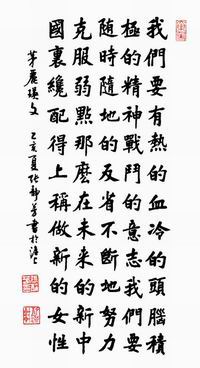 我們要有熱的血冷的頭腦積
極的精神戰鬥的意志我們要
隨時隨地的反省不斷地努力
克服弱點那麼在未來的新中
國裏纔配得上稱做新的女性
茅麗瑛文 乙亥夏 靜芳書於滬上